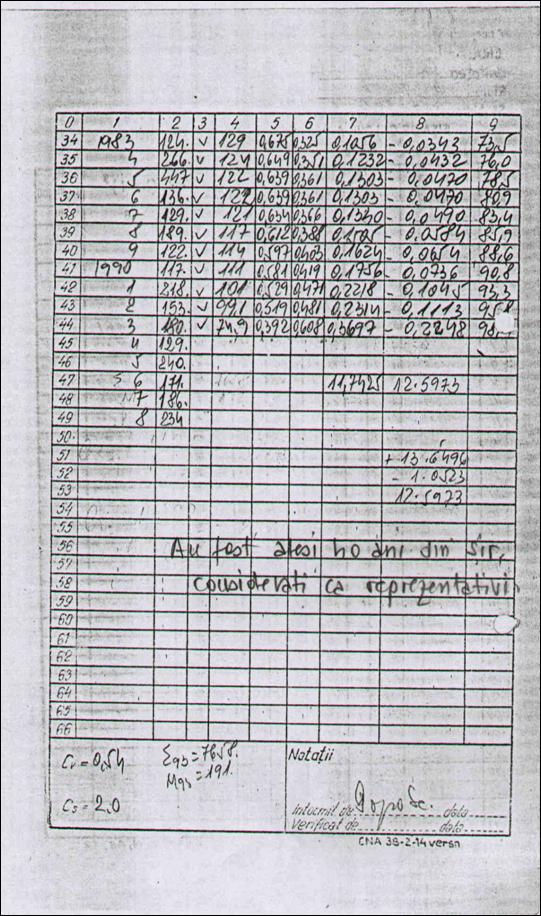 0 1 2 3 4 5 6 7 8 9
34 1983 124. v 129 0,675 0,325 0,1056 - 0,0343 73,5
35 4 266. v 124 0,649 0,351 0,1232 - 0,0432 76,0
36 5 447 v 122 0,639 0,361 0,1303 - 0,0470 78,5
37 6 136. v 122 0,639 0,361 0,1303 - 0,0470 80,9
38 7 129. v 121 0,634 0,366 0,1340 - 0,0490 83,4
39 8 189. v 117 0,612 0,388 0,1505 - 0,0584 85,9
40 9 122. v 114 0,597 0,403 0,1624 - 0,0654 88,6
41 1990 117. v 111 0,581 0,419 0,1756 - 0,0736 90,8
42 1 218. v 101 0,529 0,471 0,2218 - 0,1045 93,3
43 2 153. v 99,1 0,519 0,481 0,2314 - 0,1113
44 3 180. v 74,9 0,392 0,608 0,3697 - 0,2248
45 4 129.
46 5 240.
47 6 171. 11,7425 12.5973
48 7 186.
49 8 234
50
51 + 13.6496
52 - 1.0523
53 12.5973
54
55
56 Au fost alesi 40 ani din sir,
57
58 considerati ca reprezentativi
59
60
61
62
63
64
65
66
Cv = 0,54 Σ93 = 7658. Notații
M93 = 191.
Cs = 2.0
Intocmit de data
Verificat de data
CNA 38-2-14 versn